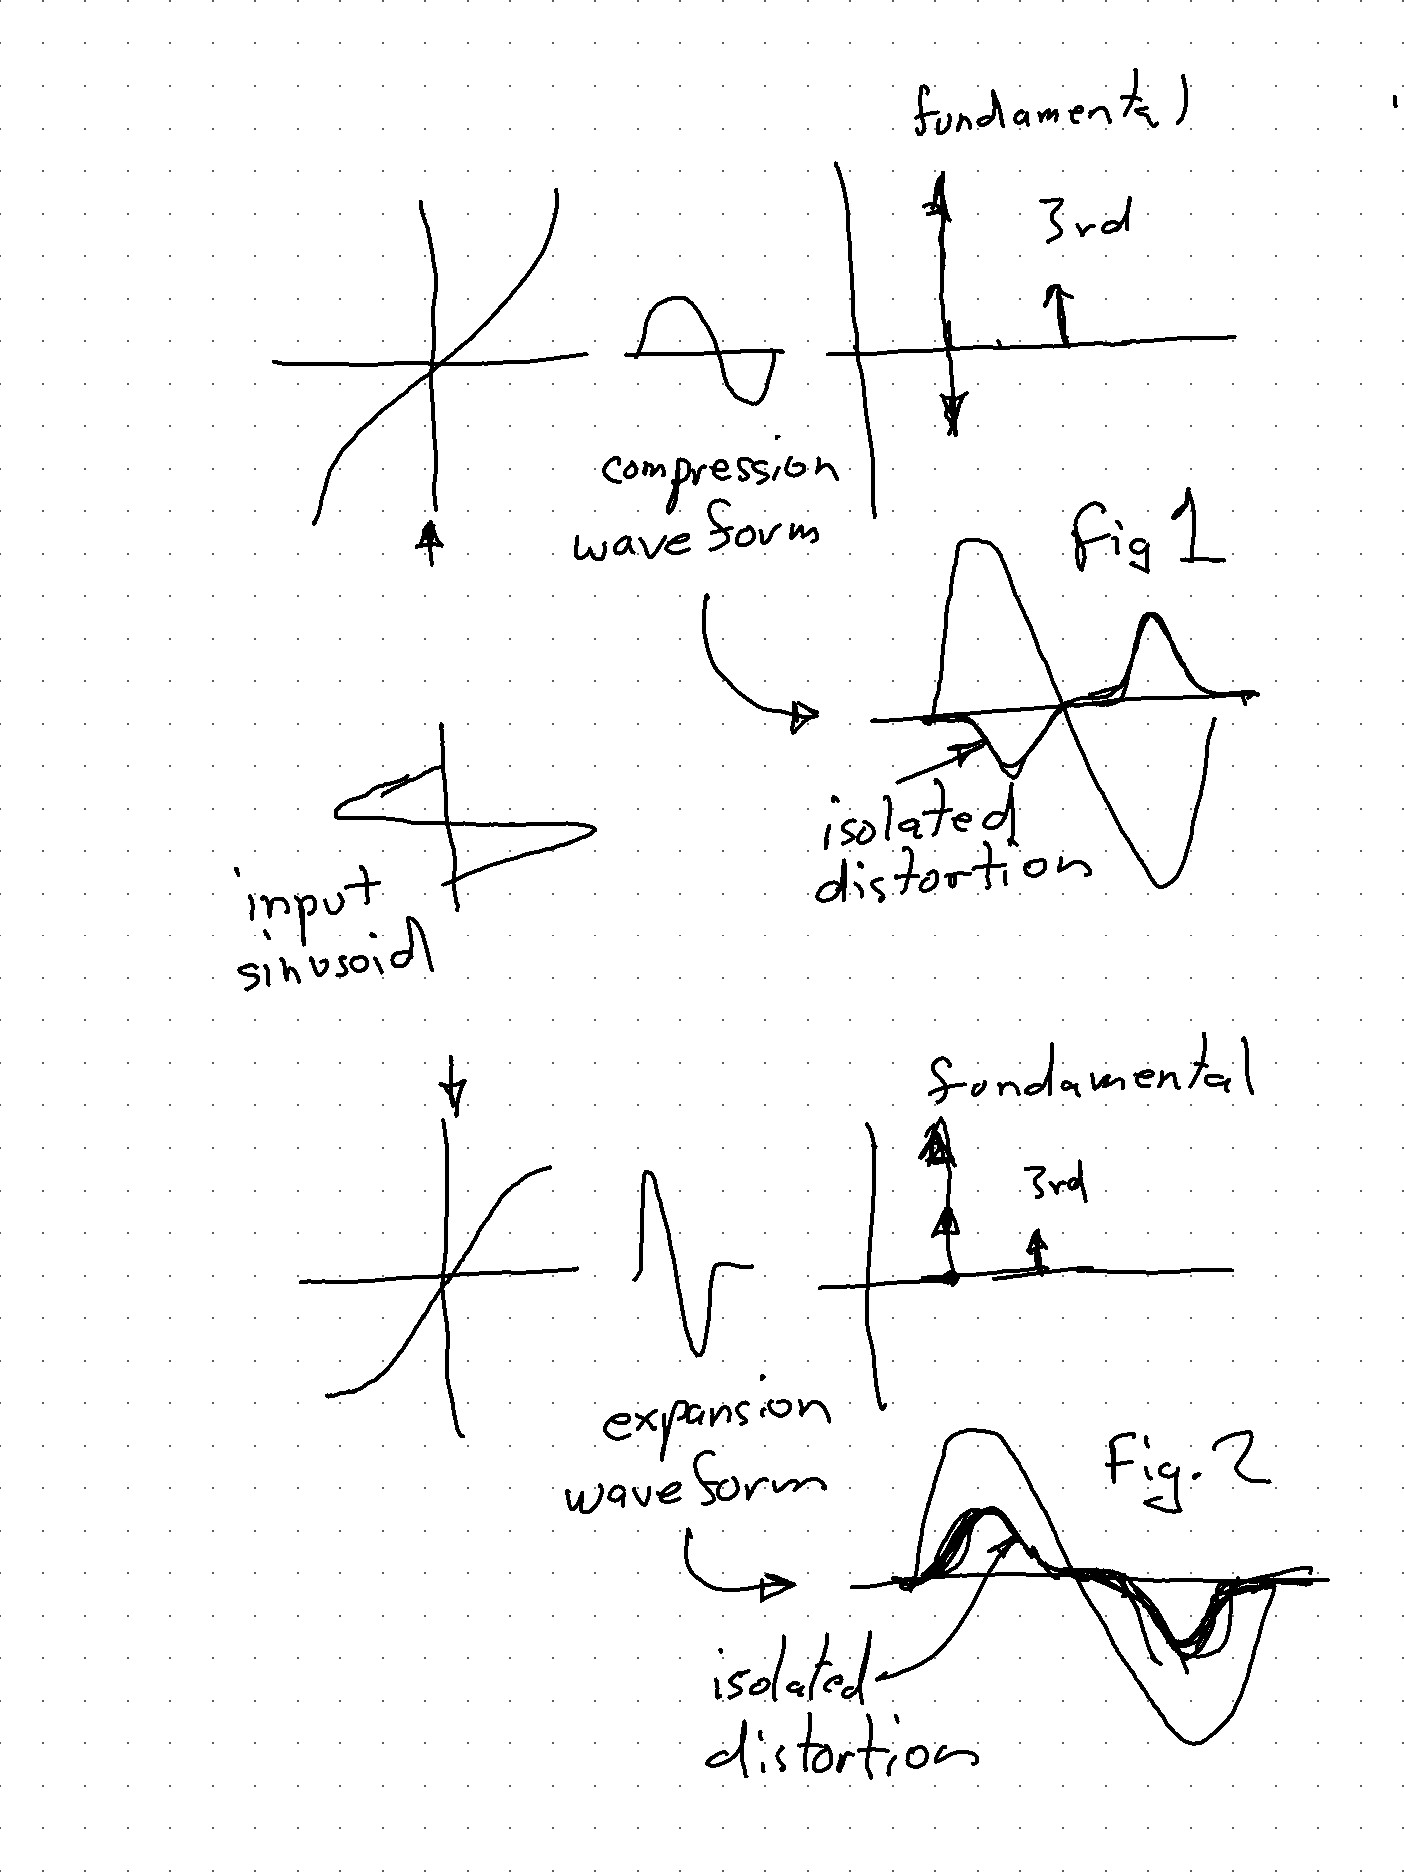 fundamental
3rd
compression
waveform
Fig 1
isolated
distortion
input
sinusoid
fundamental
3rd
expansion
waveform
Fig. 2
isolated
distortion